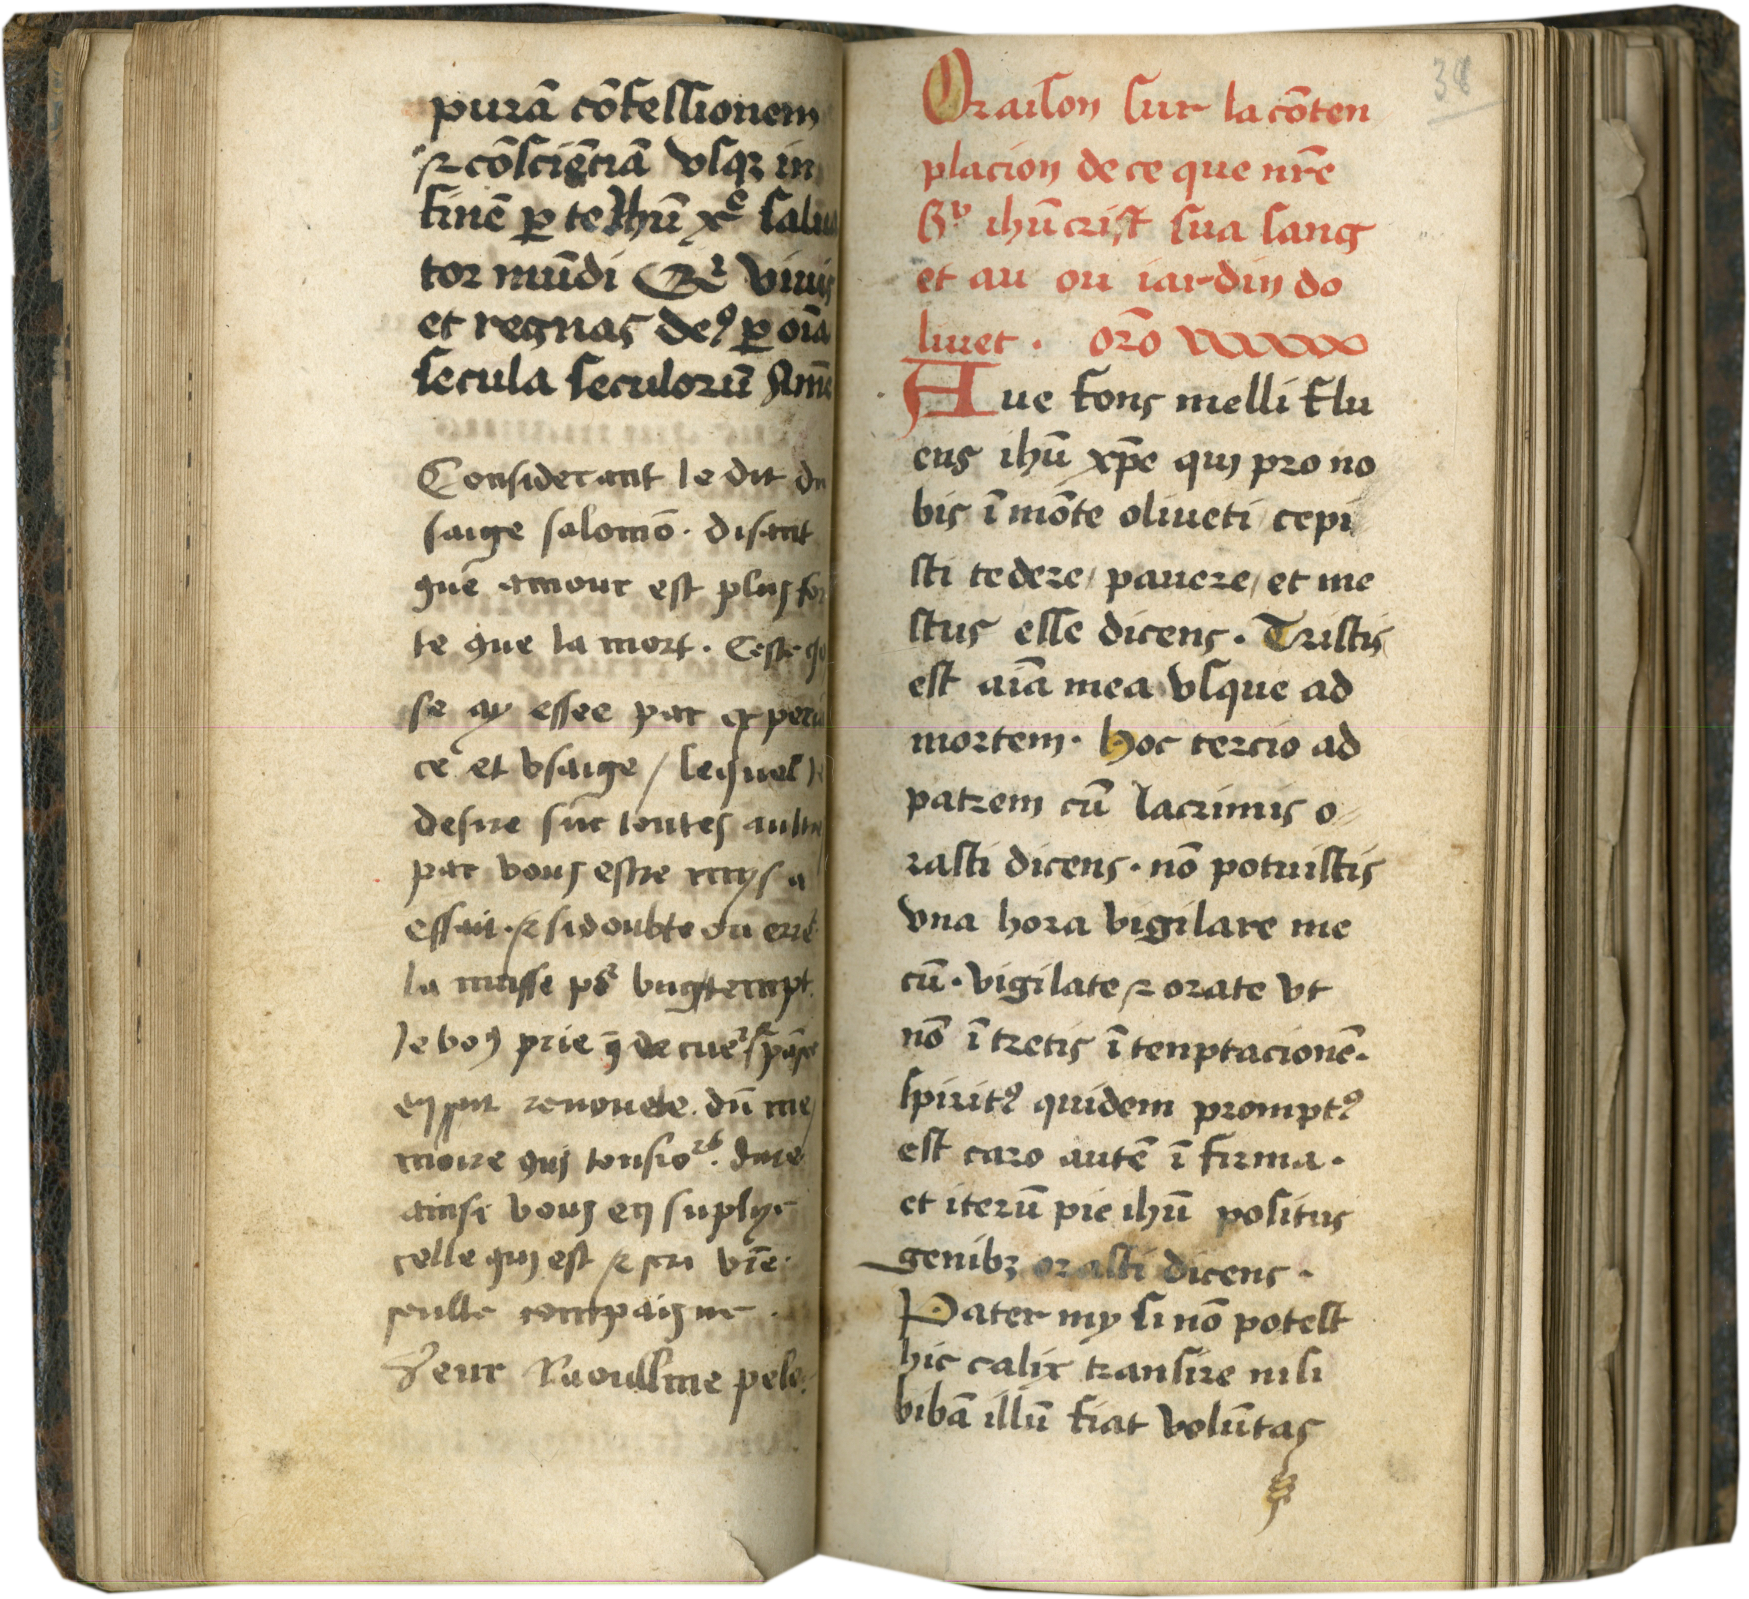 purā cōfessionem
⁊ cōsciēciā vsqꝫ in
finē ꝑ te Ihū xᵉ salua
tor mūdi Qi viuis
et regnas deꝰ ꝑ oīa
secula seculorū Amē
Considerant le dit du
saige salomō. disant
que amour est plus for
te que la mort. Ceste
se ay essee par experiē
ce et vsaige / lequel
desire sur toutes aultr
par vous estre mys a
essait. ⁊ si doubte ou erre
la misse
Je voꝰ prie de cuer
en soit renouele. dū me
moire qui
ainsi vous en suplye
celle qui est ⁊ sera vr̄e
seulle compaigne.
pele
38
Oraison sur la cōten
placion de ce que nr̄e
Sʳ ihū crist sua sang
et au ou iardin do
liuet. or̄o
Aue fons melli flu
ens ihū xp̄e qui pro no
bis ī mōte oliueti cepi
sti tedere / pauere / et me
stus esse dicens. Tristis
est aīa mea vsque ad
mortem. Hoc tercio ad
patrem cū lacrimis o
rasti dicens. nō potuistis
vna hora vigilare me
cū. vigilate ⁊ orate vt
nō ī tretis ī tenptacionē.
spiritꝰ quidem promptꝰ
est caro autē ī firma.
et iterū pie ihū positus
genibꝫ orasti dicens.
Pater my si nō potest
hic calix transire nisi
bibā illū fiat volūtas